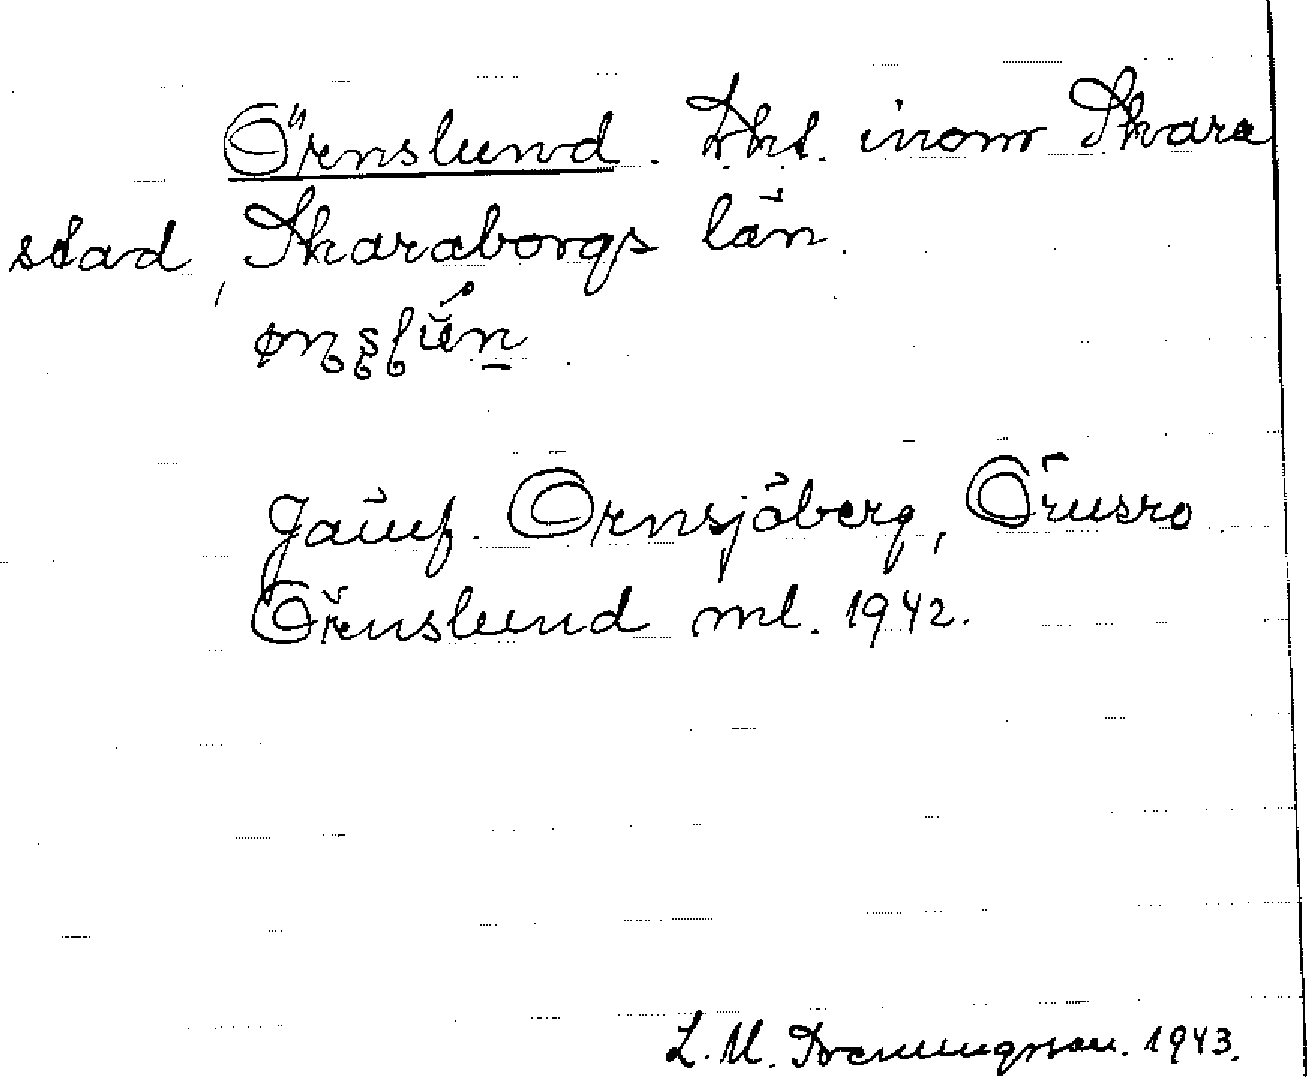 Örnslund. Lht. inom Skara
stad, Skaraborgs län.
Jämf. Ornsjöberg, Örnsro
Örnslund ml. 1942.
L. M. 1943.